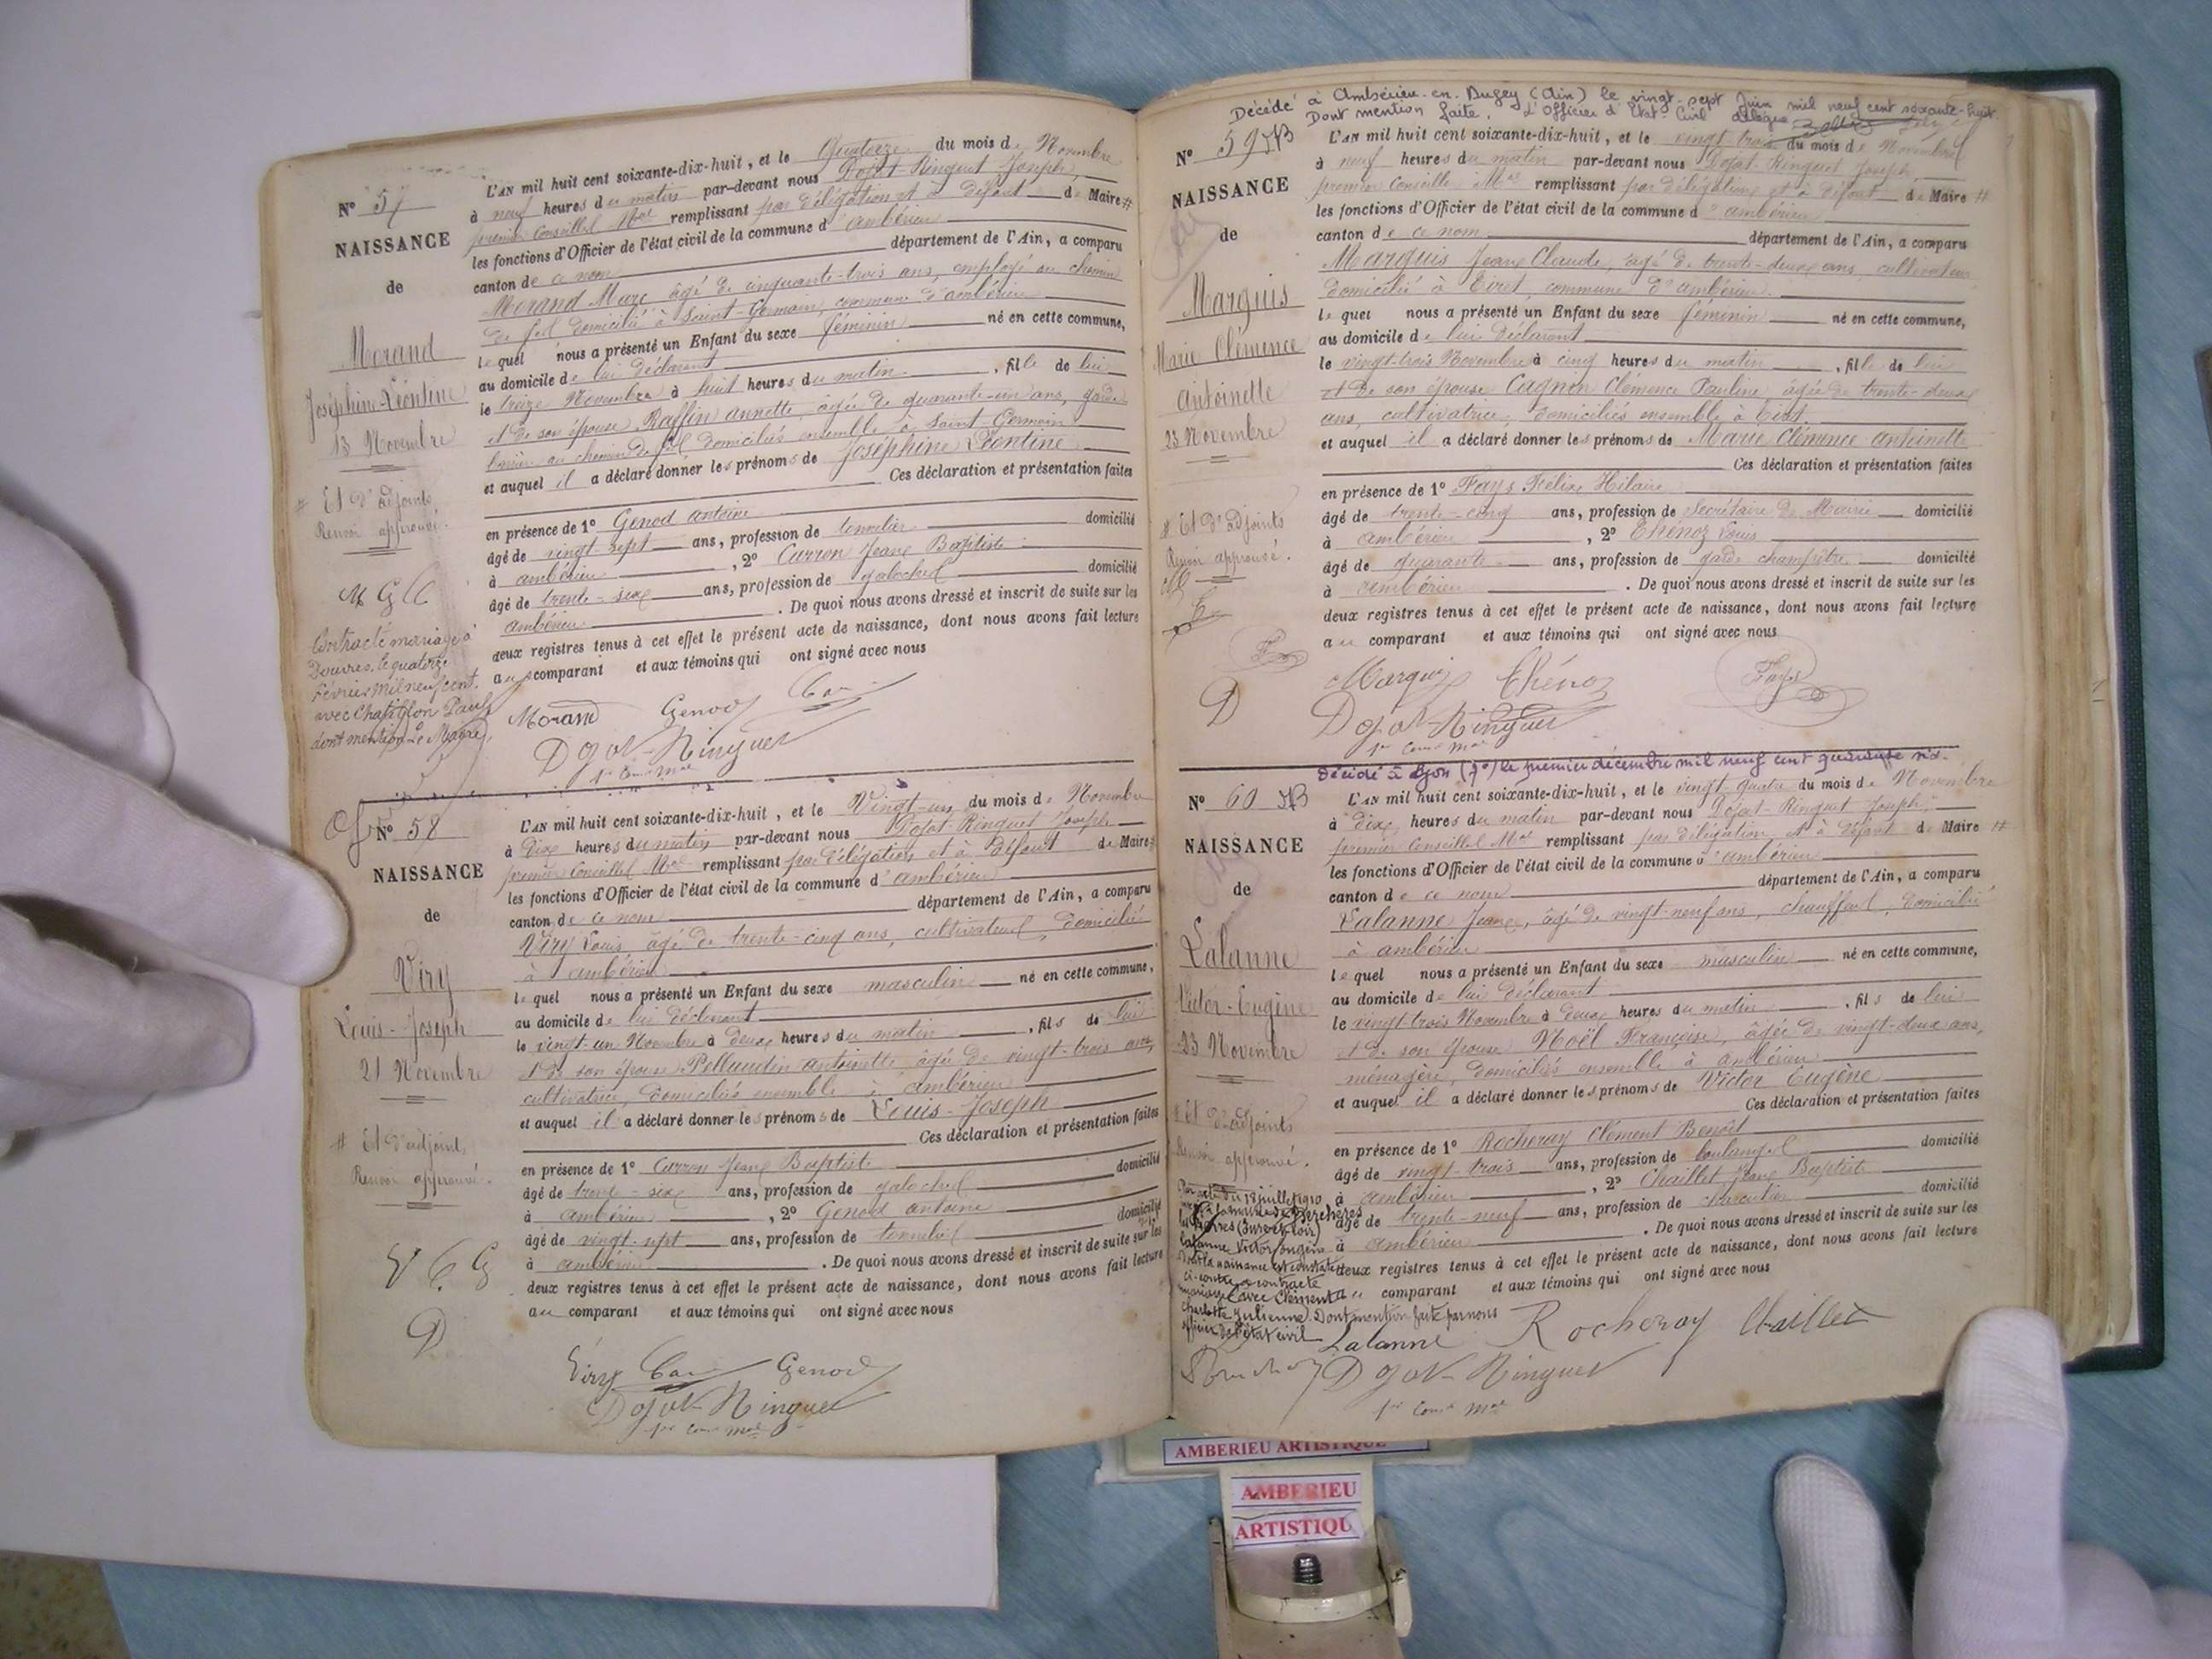 N° 57
NAISSANCE
de
Morand
Joséphine-Léontine
13 Novembre
# Et d'adjoints
Renvoi approuvé.
M G C
Contracté mariage à
Douvres, le quatorze
Février mil neuf cent.
avec Chatillon Paul
dont mention Le Maire,
L'AN mil huit cent soixante-dix-huit, et le Quatorze du mois de Novembre
à neuf heures du matin par-devant nous Dojat-Ringuet Joseph,
premier Conseiller Mal remplissant par délégation et à défaut de Maire #
les fonctions d'Officier de l'état civil de la commune d'ambérieu
canton de ce nom département de l'Ain, a comparu
Morand Marc âgé de cinquante-trois ans, employé au chemin
de fer domicilié à Saint-Germain, commune d'ambérieu
lequel nous a présenté un Enfant du sexe féminin né en cette commune,
au domicile de lui déclarant
le treize Novembre à huit heures du matin, fille de lui
et de son épouse Raffin annette, âgée de quarante-un ans, garde
barrière au chemin de fer domiciliés ensemble à Saint-Germain
et auquel il a déclaré donner les prénoms de Joséphine Léontine
Ces déclaration et présentation faites
en présence de 1° Genod antoine
âgé de vingt-sept ans, profession de tonnelier domicilié
à ambérieu, 2° Curron Jean Baptiste
âgé de trente-six ans, profession de galocher domicilié
ambérieu. De quoi nous avons dressé et inscrit de suite sur les
deux registres tenus à cet effet le présent acte de naissance, dont nous avons fait lecture
au comparant et aux témoins qui ont signé avec nous
Morand Genod
Dojat-Ringuet
1er Cons Mal
N° 58
NAISSANCE
de
Viry
Louis-Joseph
21 Novembre
# Et d'adjoint,
Renvoi approuvé.
V C G
D
L'AN mil huit cent soixante-dix-huit, et le Vingt-un du mois de Novembre
à dix heures du matin par-devant nous Dojat-Ringuet Joseph
premier Conseiller Mal remplissant par délégation et à défaut de Maire #
les fonctions d'Officier de l'état civil de la commune d'ambérieu
canton de ce nom département de l'Ain, a comparu
Viry Louis, âgé de trente-cinq ans, cultivateur, domicilié
à ambérieu
lequel nous a présenté un Enfant du sexe masculin né en cette commune,
au domicile de lui déclarant
le vingt-un Novembre à deux heures du matin, fils de lui
et de son épouse Pellaudin antoinette âgée de vingt-trois ans,
cultivatrice, domiciliés ensemble à ambérieu
et auquel il a déclaré donner les prénoms de Louis-Joseph
Ces déclaration et présentation faites
en présence de 1° Curron Jean Baptiste
âgé de trente-six ans, profession de galocher domicilié
à ambérieu, 2° Genod antoine
âgé de vingt-sept ans, profession de tonnelier domicilié
à ambérieu. De quoi nous avons dressé et inscrit de suite sur les
deux registres tenus à cet effet le présent acte de naissance, dont nous avons fait lecture
au comparant et aux témoins qui ont signé avec nous
Viry Genod
Dojat-Ringuet
1er Cons Mal
Décédé à Ambérieu-en-Bugey (Ain) le vingt-sept Juin mil neuf cent soixante-huit.
Dont mention faite. L'Officier d'Etat-Civil délégué
N° 59
NAISSANCE
de
Marquis
Marie Clémence
Antoinette
23 Novembre
# Et d'adjoints
Renvoi approuvé.
D
L'AN mil huit cent soixante-dix-huit, et le vingt-trois du mois de Novembre
à neuf heures du matin par-devant nous Dojat-Ringuet Joseph,
premier Conseiller Mal remplissant par délégation et à défaut de Maire #
les fonctions d'Officier de l'état civil de la commune d'ambérieu
canton de ce nom département de l'Ain, a comparu
Marquis Jean Claude, âgé de trente-deux ans, cultivateur
domicilié à Tiret, commune d'ambérieu.
lequel nous a présenté un Enfant du sexe féminin né en cette commune,
au domicile de lui déclarant
le vingt-trois Novembre à cinq heures du matin, fille de lui
et de son épouse Cagnin Clémence Pauline âgée de trente-deux
ans, cultivatrice, domiciliés ensemble à Tiret
et auquel il a déclaré donner les prénoms de Marie Clémence Antoinette
Ces déclaration et présentation faites
en présence de 1° Fays Félix Hilaire
âgé de trente-cinq ans, profession de Secrétaire de Mairie domicilié
à ambérieu, 2° Thénoz Louis
âgé de quarante ans, profession de garde champêtre domicilié
à ambérieu. De quoi nous avons dressé et inscrit de suite sur les
deux registres tenus à cet effet le présent acte de naissance, dont nous avons fait lecture
au comparant et aux témoins qui ont signé avec nous
Marquis Thénoz Fays
Dojat-Ringuet
1er Cons Mal
Décédé à Lyon (7e) le premier décembre mil neuf cent quarante six.
N° 60
NAISSANCE
de
Lalanne
Victor-Eugène
23 Novembre
# Et d'adjoints
Renvoi approuvé.
Par acte du 18 juillet 1910
Lalanne Victor Eugène
dont la naissance est constatée
ci-contre a contracté
mariage avec Clément
Charlotte Julienne. Dont mention faite par nous
officier de l'état civil
L'AN mil huit cent soixante-dix-huit, et le vingt-quatre du mois de Novembre
à dix heures du matin par-devant nous Dojat-Ringuet Joseph,
premier Conseiller Mal remplissant par délégation et à défaut de Maire #
les fonctions d'Officier de l'état civil de la commune d'ambérieu
canton de ce nom département de l'Ain, a comparu
Lalanne Jean, âgé de vingt-neuf ans, chauffeur, domicilié
à ambérieu
lequel nous a présenté un Enfant du sexe masculin né en cette commune,
au domicile de lui déclarant
le vingt-trois Novembre à deux heures du matin, fils de lui
et de son épouse Noël Françoise, âgée de vingt-deux ans,
ménagère, domiciliés ensemble à ambérieu
et auquel il a déclaré donner les prénoms de Victor Eugène
Ces déclaration et présentation faites
en présence de 1° Rocheray Clément Benoît
âgé de vingt-trois ans, profession de boulanger domicilié
à ambérieu, 2° Chaillet Jean Baptiste
âgé de trente-neuf ans, profession de charcutier domicilié
à ambérieu. De quoi nous avons dressé et inscrit de suite sur les
deux registres tenus à cet effet le présent acte de naissance, dont nous avons fait lecture
au comparant et aux témoins qui ont signé avec nous
Lalanne Rocheray Chaillet
Dojat-Ringuet
1er Cons Mal
AMBERIEU ARTISTIQUE
AMBERIEU
ARTISTIQU